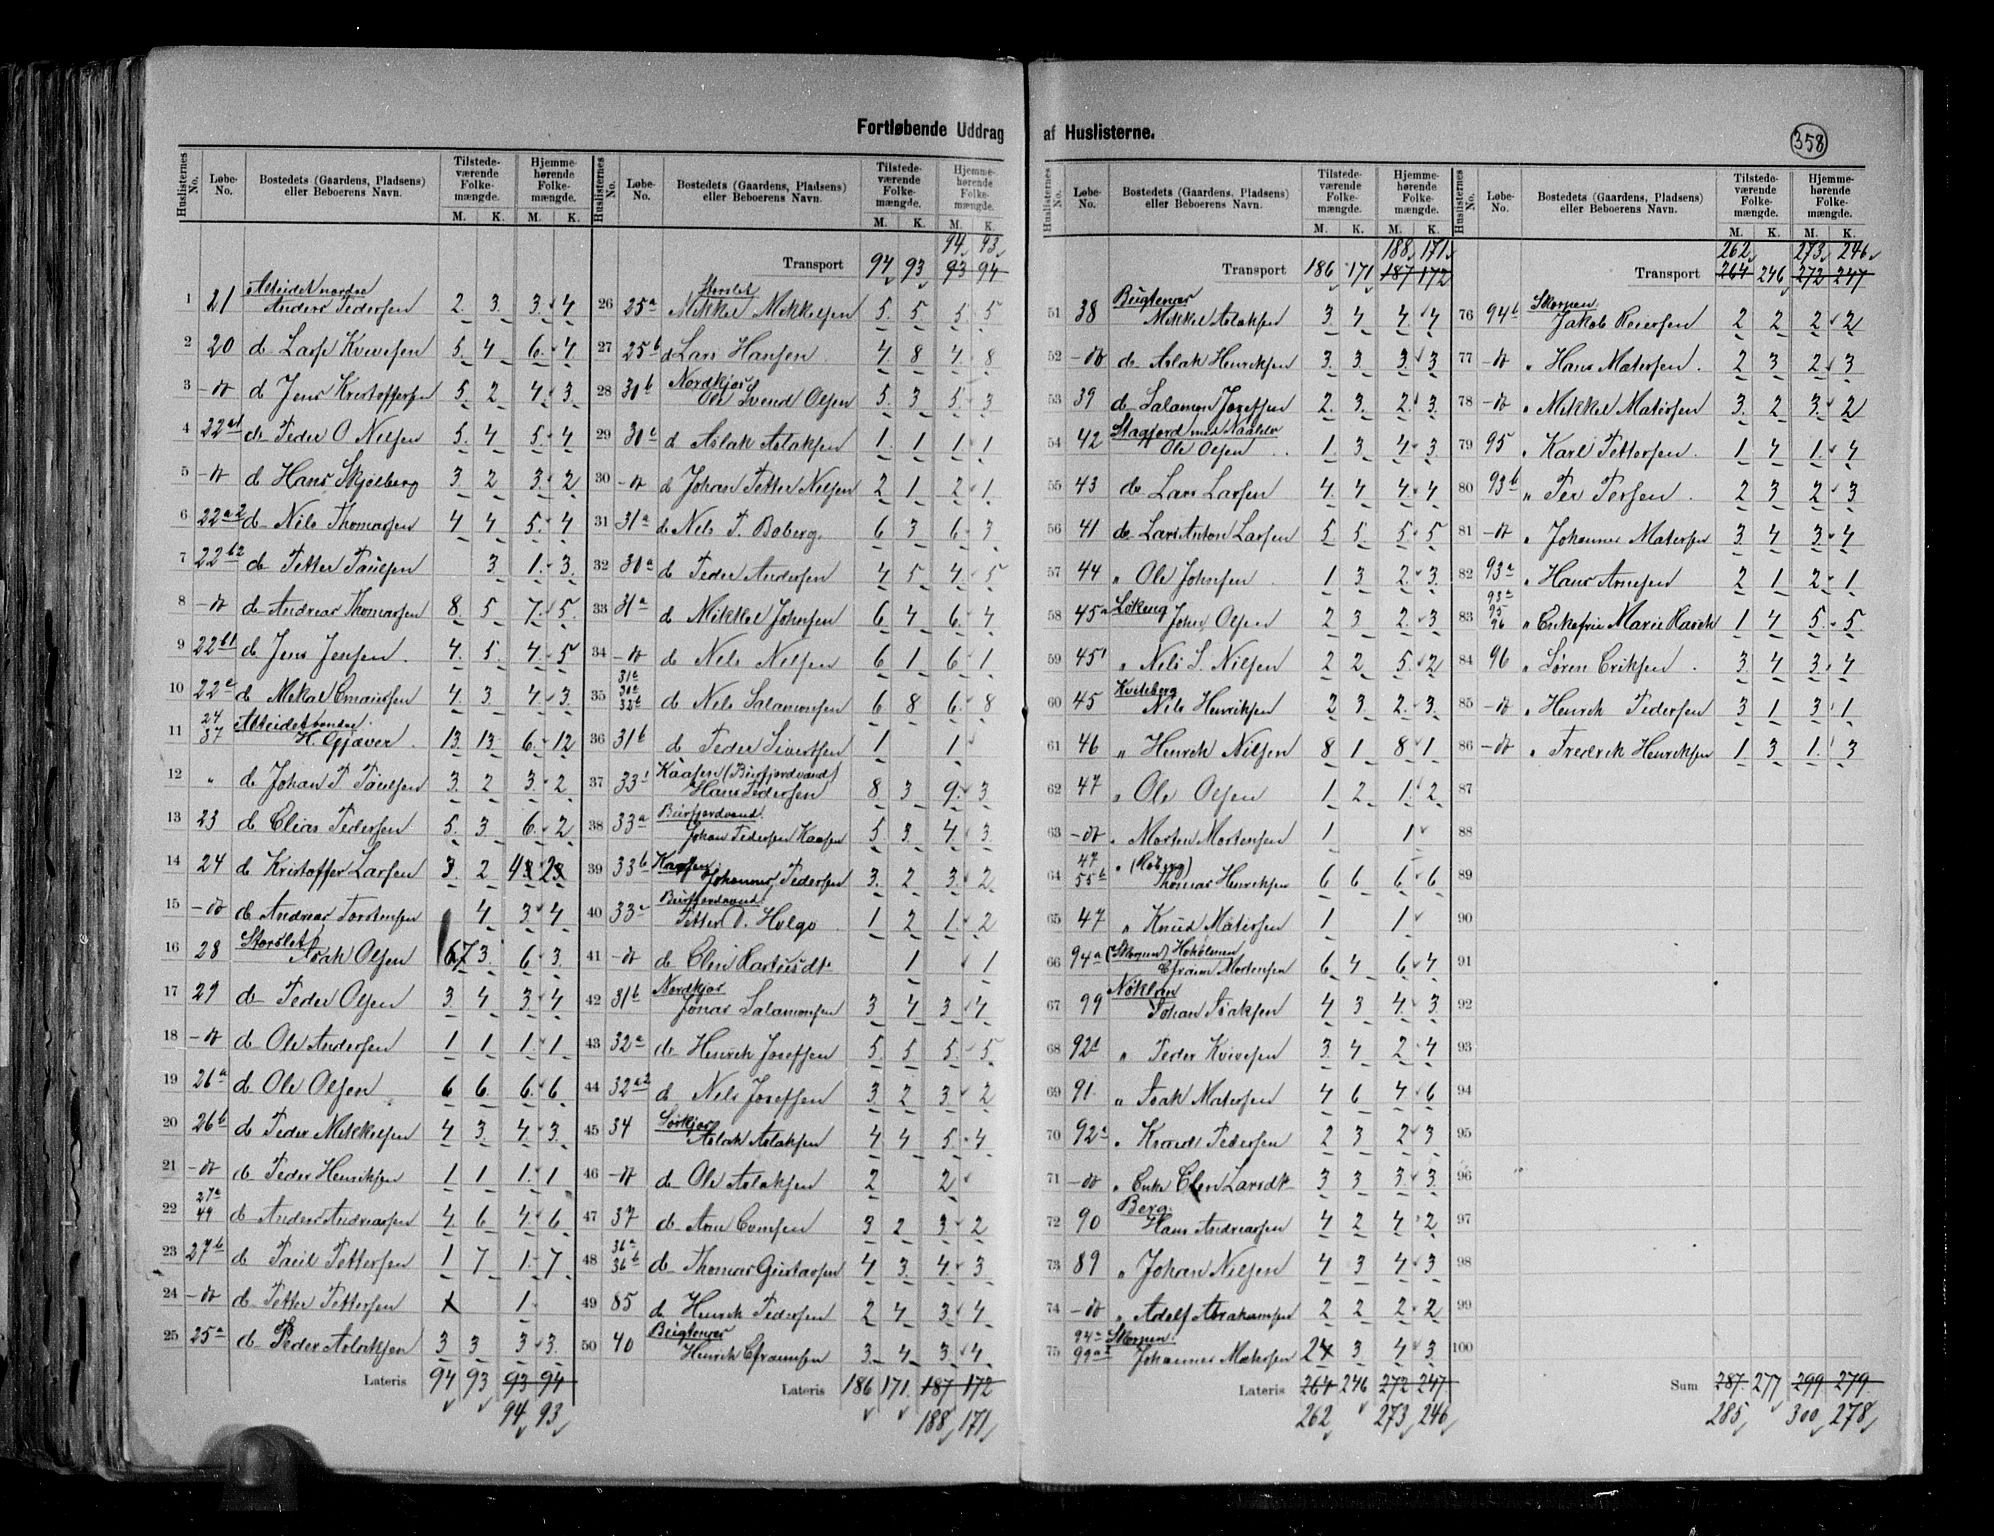 Fortløbende Uddrag af Huslisterne.
358
Huslisternes No. Løbe-No. Bostedets (Gaardens, Pladsens) eller Beboerens Navn. Tilstedeværende Folkemængde. M. K. Hjemmehørende Folkemængde. M. K.
Alteidet nordre
1 21 Anders Pedersen 2 3 3 4
2 20 do Lasse Kvivesen 5 4 6 4
3 -do- do Jens Kristoffersen 5 2 4 3
4 do Peder O Nilsen 5 4 5 4
5 -do- do Hans Skjølberg 3 2 3 2
6 22a2 do Nils Thomassen 4 4 5 4
7 22b2 do Petter Paulsen 3 1 3
8 -do- do Andreas Thomassen 8 5 7 5
9 22b1 do Jens Jensen 4 5 4 5
10 22a do 4 3 4 3
11 24 37 H. Gjæver 13 13 6 12
12 " do Johan P Paulsen 3 2 3 2
13 23 do Elias Pedersen 5 3 6 2
14 24 do Kristoffer Larsen 3 2
15 -do- do Andreas Torstensen 4 3 4
Storslet
16 28 Isak Olsen 3 6 3
17 29 do Peder Olsen 3 4 3 4
18 -do- do Ole Andersen 1 1 1 1
19 26a do Ole Olsen 6 6 6 6
20 26b do Peder Mikkelsen 4 3 4 3
21 -do- do Peder Henriksen 1 1 1 1
22 27a 49 do Anders Andreassen 4 6 4 6
23 27b do Paul Pettersen 1 7 1 7
24 -do- do Petter Pettersen 1
25 25a do Peder Aslaksen 3 3 3 3
Lateris 94 93 93 94
94 93
Huslisternes No. Løbe-No. Bostedets (Gaardens, Pladsens) eller Beboerens Navn. Tilstedeværende Folkemængde. M. K. Hjemmehørende Folkemængde. M. K.
94 93
Transport 94 93 93 94
Storslet
26 25a Mikkel Mikkelsen 5 5 5 5
27 25b do Lars Hansen 4 8 4 8
Nordkjos
28 30b Ole Svend Olsen 5 3 5 3
29 30b do Aslak Aslaksen 1 1 1 1
30 -do- do Johan Petter Nilsen 2 1 2 1
31 31a do Nils P. Boberg 6 3 6 3
32 30a do Peder Andersen 4 5 4 5
33 31a do Mikkel Johnsen 6 4 6 4
34 -do- do Nils Nilsen 6 1 6 1
35 31a 30a 32a do Nils Salamonsen 6 8 6 8
36 31b do Peder Sivertsen 1 1
Kaasen (Burfjordvand)
37 33 Hans Pedersen 8 3 9 3
Burfjordvand
38 33a Johan Pedersen Kaasen 5 3 4 3
Kaasen
39 33b Johannes Pedersen 3 2 3 2
Burfjordvand
40 33 Petter D. Helgo 1 2 1 2
41 -do- do Elen Rasteusdt. 1 1
Nordkjos
42 31b Jonas Salamonsen 3 4 3 4
43 32a do Henrik Josefsen 5 5 5 5
44 32a2 do Nils Josefsen 3 2 3 2
Sørkjos
45 34 Aslak Aslaksen 4 4 5 4
46 -do- do Ole Aslaksen 2 2
47 37 do Arn Comsen 3 2 3 2
48 36a 36b do Thomas Gustavsen 4 3 4 3
49 85 do Henrik Pedersen 2 4 3 4
50 40 Henrik Efraimsen 3 4 3 4
Lateris 186 171 187 172
188 171
Huslisternes No. Løbe-No. Bostedets (Gaardens, Pladsens) eller Beboerens Navn. Tilstedeværende Folkemængde. M. K. Hjemmehørende Folkemængde. M. K.
188 171
Transport 186 171 187 172
51 38 Mikkel Aslaksen 3 4 4 4
52 -do- do Aslak Henriksen 3 3 3 3
53 39 do Salamon Josefsen 2 3 2 3
54 42 Ole Olsen 1 3 4 3
55 43 do Lars Larsen 4 4 4 4
56 41 do Lars Anton Larsen 5 5 5 5
57 44 " Ole Johnsen 1 3 2 3
Løkeng
58 45a John Olsen 2 3 2 3
59 45 " Nils S. Nilsen 2 2 5 2
Kviteberg
60 45 Nils Henriksen 2 3 2 3
61 46 " Henrik Nilsen 8 1 8 1
62 47 " Ole Olsen 1 2 1 2
63 -do- " Morten Mortensen 1 1
64 47 55b " (Røberg) Thomas Henriksen 6 6 6 6
65 47 " Knud Matersen 1 1
66 94a (Skorpen) Hokholmen Efraim Mortensen 6 4 6 4
Nøklan
67 99 Johan Isaksen 4 3 4 3
68 92 " Peder Kvivesen 3 4 2 4
69 91 " Isak Matersen 4 6 4 6
70 92a " Kvæde Pedersen 2 3 2 3
71 -do- " Enke Elen Larsdt 3 3 3 3
Berg
72 90 Hans Andreassen 4 2 4 2
73 89 " Johan Nilsen 4 3 4 3
74 -do- " Adolf Abrahamsen 2 2 2 2
Skorpen
75 94a 99a2 Johannes Matersen 3 4 3
Lateris 264 246 272 247
262 273 246
Huslisternes No. Løbe-No. Bostedets (Gaardens, Pladsens) eller Beboerens Navn. Tilstedeværende Folkemængde. M. K. Hjemmehørende Folkemængde. M. K.
262 273 246
Transport 264 246 272 247
Skorpen
76 94b Jakob Reiersen 2 2 2 2
77 -do- " Hans Matersen 2 3 2 3
78 -do- " Mikkel Matersen 3 2 3 2
79 95 " Karl Pettersen 1 4 1 4
80 93b " Per Persen 2 3 2 3
81 -do- " Johannes Matersen 3 4 3 4
82 93a " Hans Arnesen 2 1 2 1
83 93a 95 96 " Enkefru Marie Rasch 1 4 5 5
84 96 " Søren Eriksen 3 4 3 4
85 -do- " Henrik Pedersen 3 1 3 1
86 -do- " Fredrik Henriksen 1 3 1 3
87
88
89
90
91
92
93
94
95
96
97
98
99
100
Sum 287 277 299 279
285 300 278